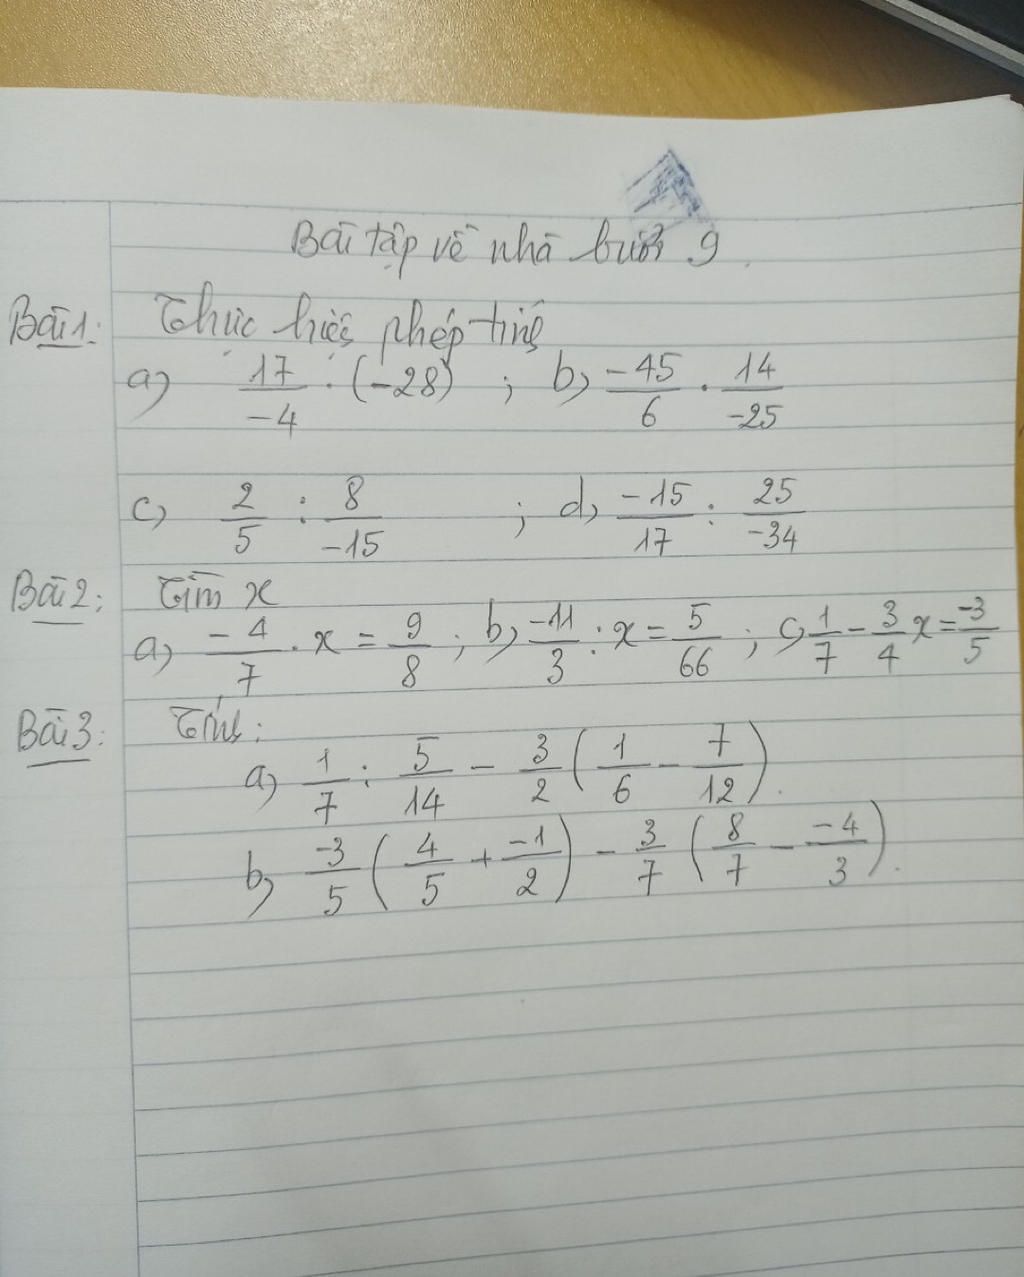 Bài tập về nhà buổi 9.
Bài 1: Thực hiện phép tính
a) 17/-4 . (-28) ; b) -45/6 . 14/-25
c) 2/5 : 8/-15 ; d) -15/17 : 25/-34
Bài 2: Tìm x
a) -4/7 . x = 9/8 ; b) -11/3 : x = 5/66 ; c) 1/7 - 3/4 x = -3/5
Bài 3: Tính:
a) 1/7 : 5/14 - 3/2 (1/6 - 7/12).
b) -3/5 (4/5 + -1/2) - 3/7 (8/7 - -4/3).